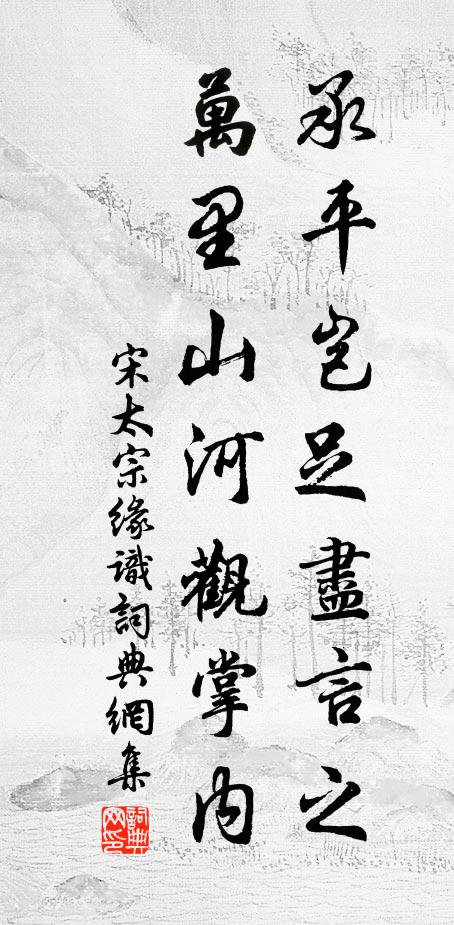 承平豈足盡言之
萬里山河觀掌內
宋太宗緣識詞典網集
詞典網印